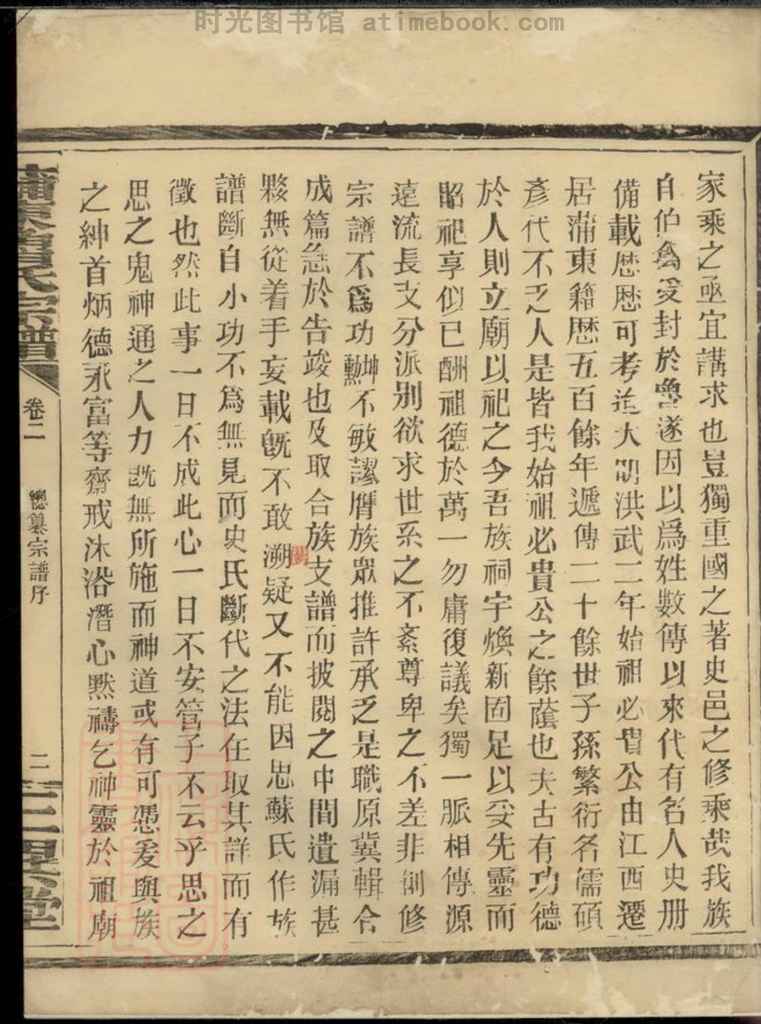 时光图书馆 atimebook.com
家乘之亟宜講求也豈獨重國之著史邑之修乘哉我族
自伯禽受封於魯遂因以爲姓數傳以來代有名人史册
備載歷歷可考迨大明洪武二年始祖必貴公由江西遷
居蒲東籍歷五百餘年遞傳二十餘世子孫繁衍名儒碩
彥代不乏人是皆我始祖必貴公之餘蔭也夫古有功德
於人則立廟以祀之今吾族祠宇煥新固足以妥先靈而
昭祀享似已酬祖德於萬一勿庸復議矣獨一脈相傳源
遠流長支分派別欲求世系之不紊尊卑之不差非創修
宗譜不爲功坤勳不敏謬膺族眾推許承乏是職原冀輯合
成篇急於告竣也及取合族支譜而披閱之中間遺漏甚
夥無從着手妄載旣不敢溯疑又不能因思蘇氏作族
譜斷自小功不爲無見而史氏斷代之法在取其詳而有
徵也然此事一日不成此心一日不安管子不云乎思之
思之鬼神通之人力旣無所施而神道或有可憑爰與族
之紳首炳德永富等齋戒沐浴潛心默禱乞神靈於祖廟
氏宗譜
卷二
總纂宗譜序
二
三異堂